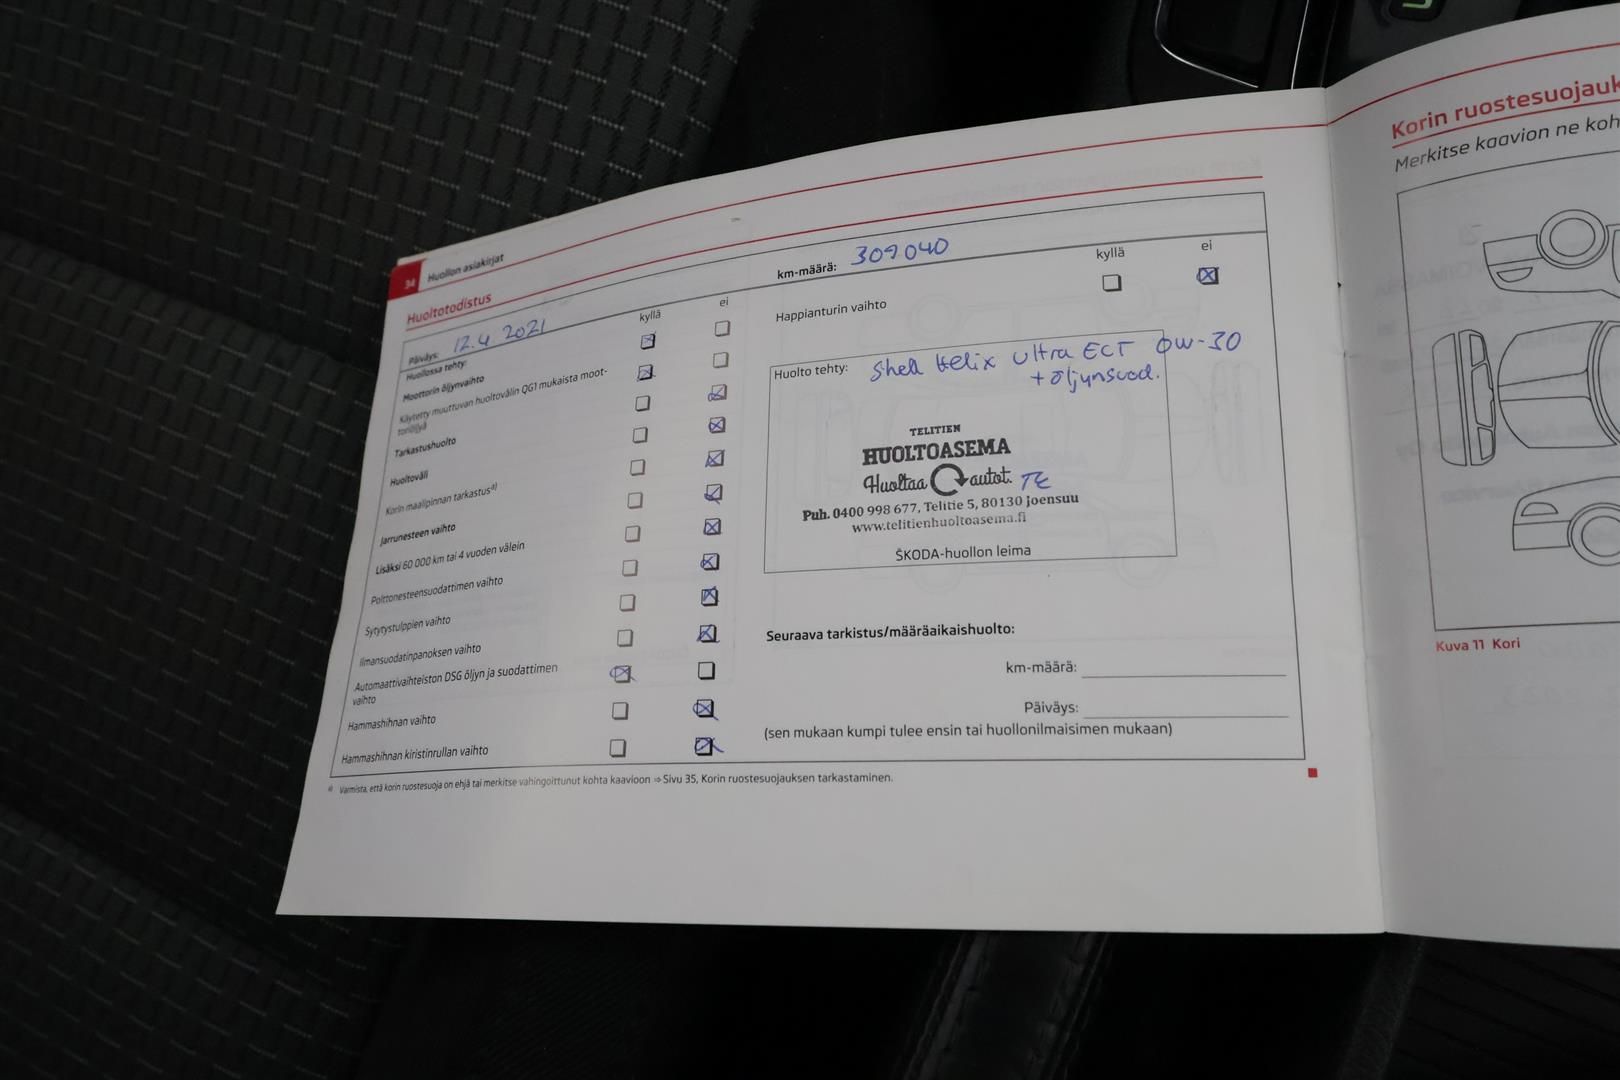 34 Huollon asiakirjat
Huoltotodistus
Päiväys: 12.4.2021
km-määrä: 309.040
Huollossa tehty:
kyllä ei
Moottorin öljynvaihto
Käytetty muuttuvan huoltovälin QG1 mukaista moot-
toriöljyä
Tarkastushuolto
Huoltoväli
Korin maalipinnan tarkastusᵃ⁾
Jarrunesteen vaihto
Lisäksi 60 000 km tai 4 vuoden välein
Polttonesteensuodattimen vaihto
Sytytystulppien vaihto
Ilmansuodatinpanoksen vaihto
Automaattivaihteiston DSG öljyn ja suodattimen
vaihto
Hammashihnan vaihto
Hammashihnan kiristinrullan vaihto
kyllä ei
Happianturin vaihto
Huolto tehty: Shell Helix Ultra ECT 0W-30
+ öljynsuod.
TELITIEN
HUOLTOASEMA
Huoltaa autot. TE
Puh. 0400 998 677, Telitie 5, 80130 Joensuu
www.telitienhuoltoasema.fi
ŠKODA-huollon leima
Seuraava tarkistus/määräaikaishuolto:
km-määrä:
Päiväys:
(sen mukaan kumpi tulee ensin tai huollonilmaisimen mukaan)
ᵃ⁾ Varmista, että korin ruostesuoja on ehjä tai merkitse vahingoittunut kohta kaavioon ⇒ Sivu 35, Korin ruostesuojauksen tarkastaminen.
Korin ruostesuojauk
Merkitse kaavion ne koh
Kuva 11 Kori